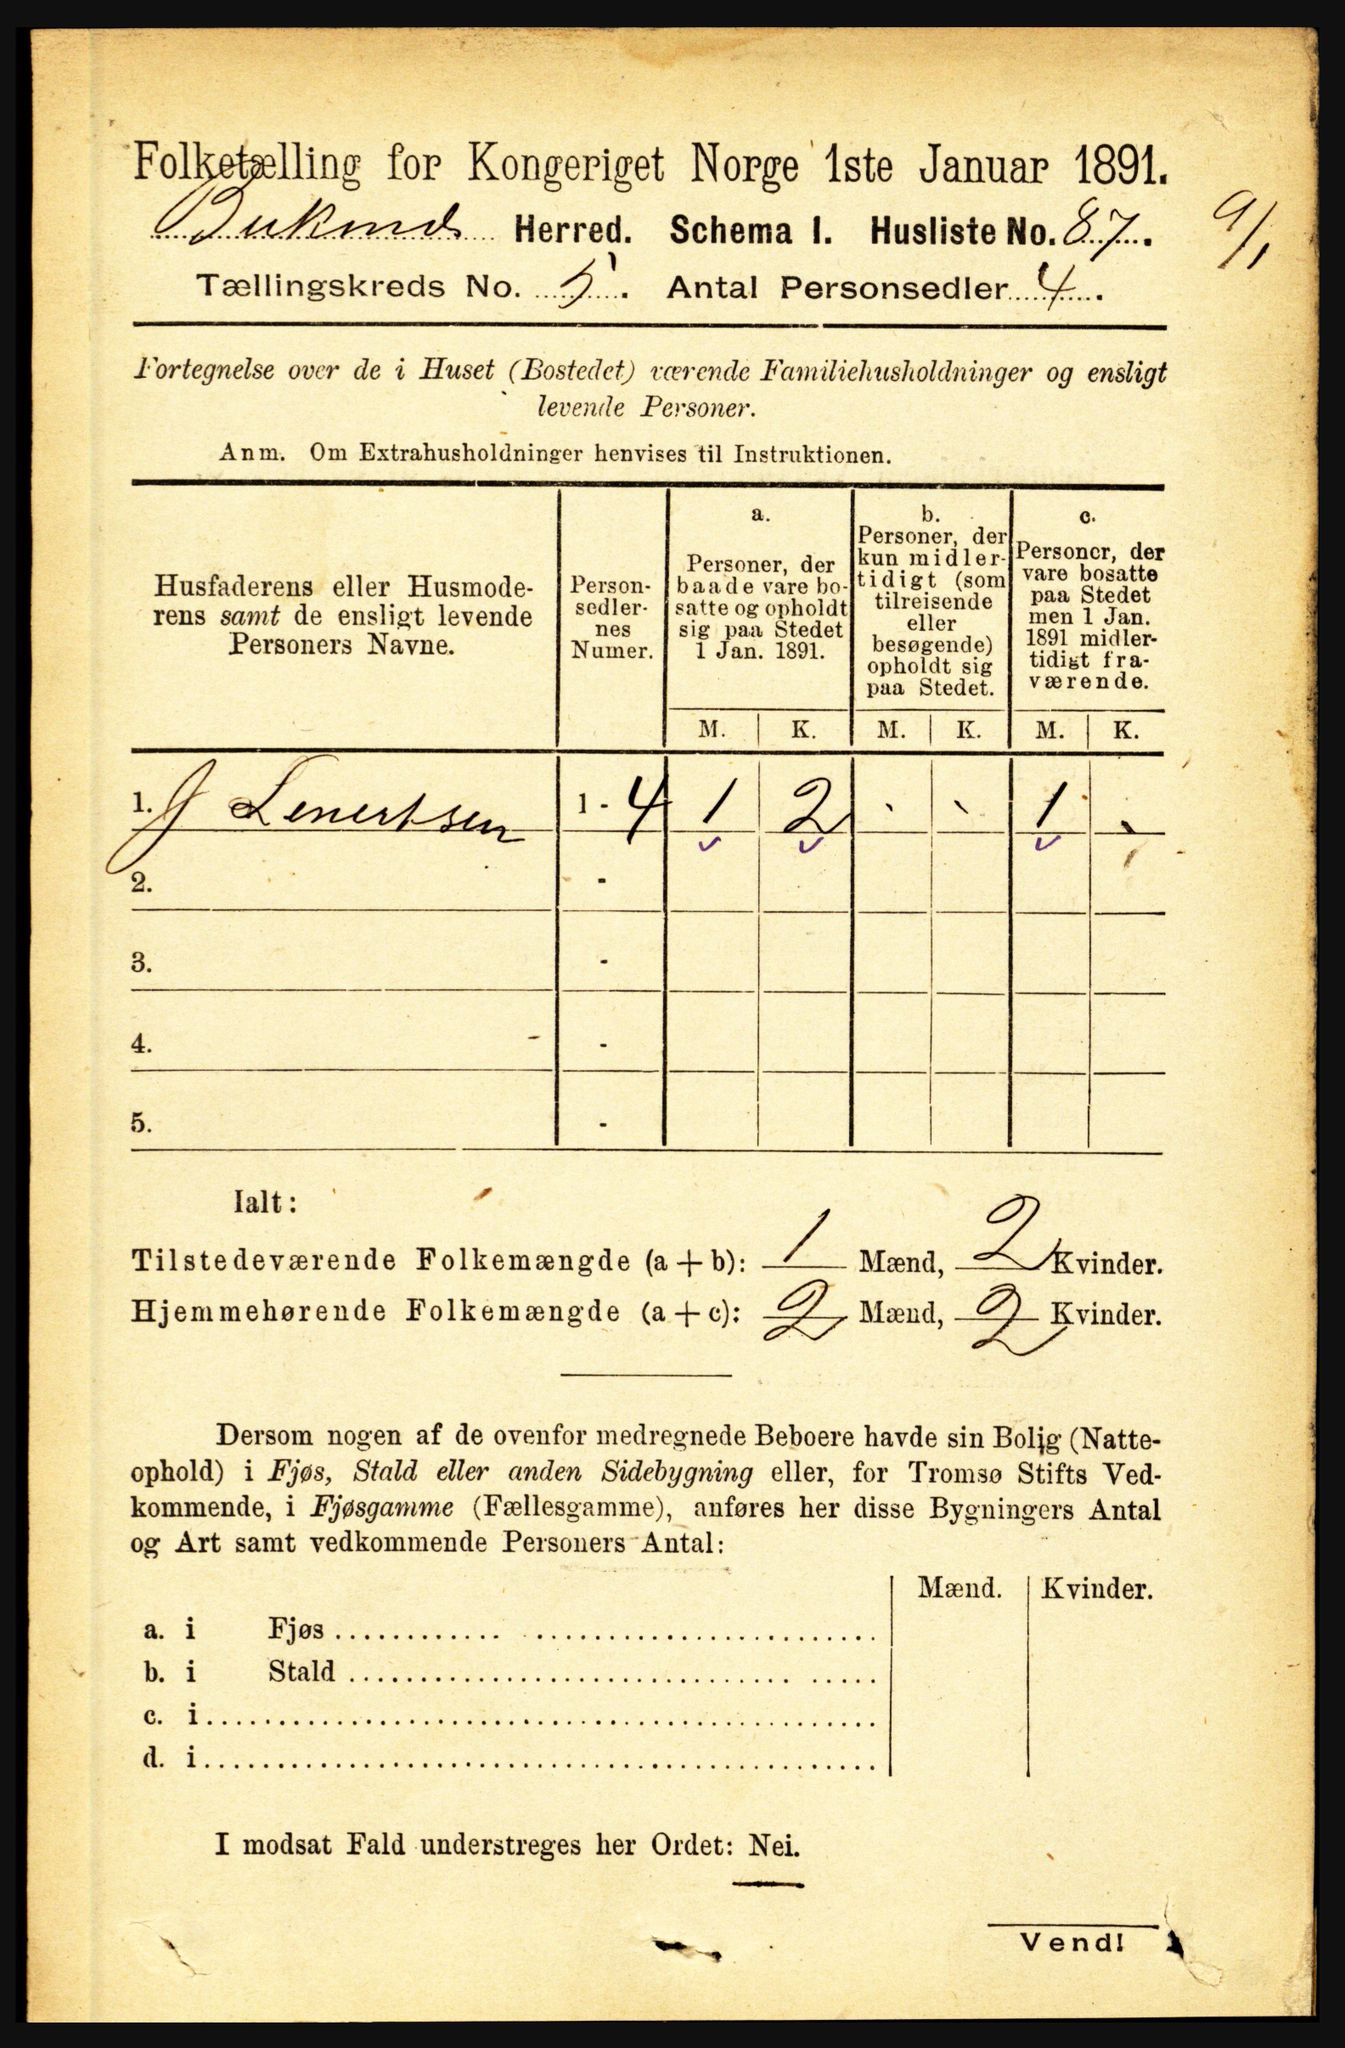 Folketælling for Kongeriget Norge 1ste Januar 1891.
Herred. Schema I. Husliste No. 87.
9/1
Tællingskreds No. 5. Antal Personsedler 4.
Fortegnelse over de i Huset (Bostedet) værende Familiehusholdninger og ensligt
levende Personer.
Anm. Om Extrahusholdninger henvises til Instruktionen.
Husfaderens eller Husmode-
rens samt de ensligt levende
Personers Navne.
Person-
sedler-
nes
Numer.
a.
Personer, der
baade vare bo-
satte og opholdt
sig paa Stedet
1 Jan. 1891.
b.
Personer, der
kun midler-
tidigt (som
tilreisende
eller
besøgende)
opholdt sig
paa Stedet.
c.
Personer, der
vare bosatte
paa Stedet
men 1 Jan.
1891 midler-
tidigt fra-
værende.
M. K. M. K. M. K.
1. J Lenertsen 1 - 4 1 2 · · 1 ·
2. -
3. -
4. -
5. -
Ialt:
Tilstedeværende Folkemængde (a + b): 1 Mænd, 2 Kvinder.
Hjemmehørende Folkemængde (a + c): 2 Mænd, 2 Kvinder.
Dersom nogen af de ovenfor medregnede Beboere havde sin Bolig (Natte-
ophold) i Fjøs, Stald eller anden Sidebygning eller, for Tromsø Stifts Ved-
kommende, i Fjøsgamme (Fællesgamme), anføres her disse Bygningers Antal
og Art samt vedkommende Personers Antal:
Mænd. Kvinder.
a. i Fjøs
b. i Stald
c. i
d. i
I modsat Fald understreges her Ordet: Nei.
Vend!